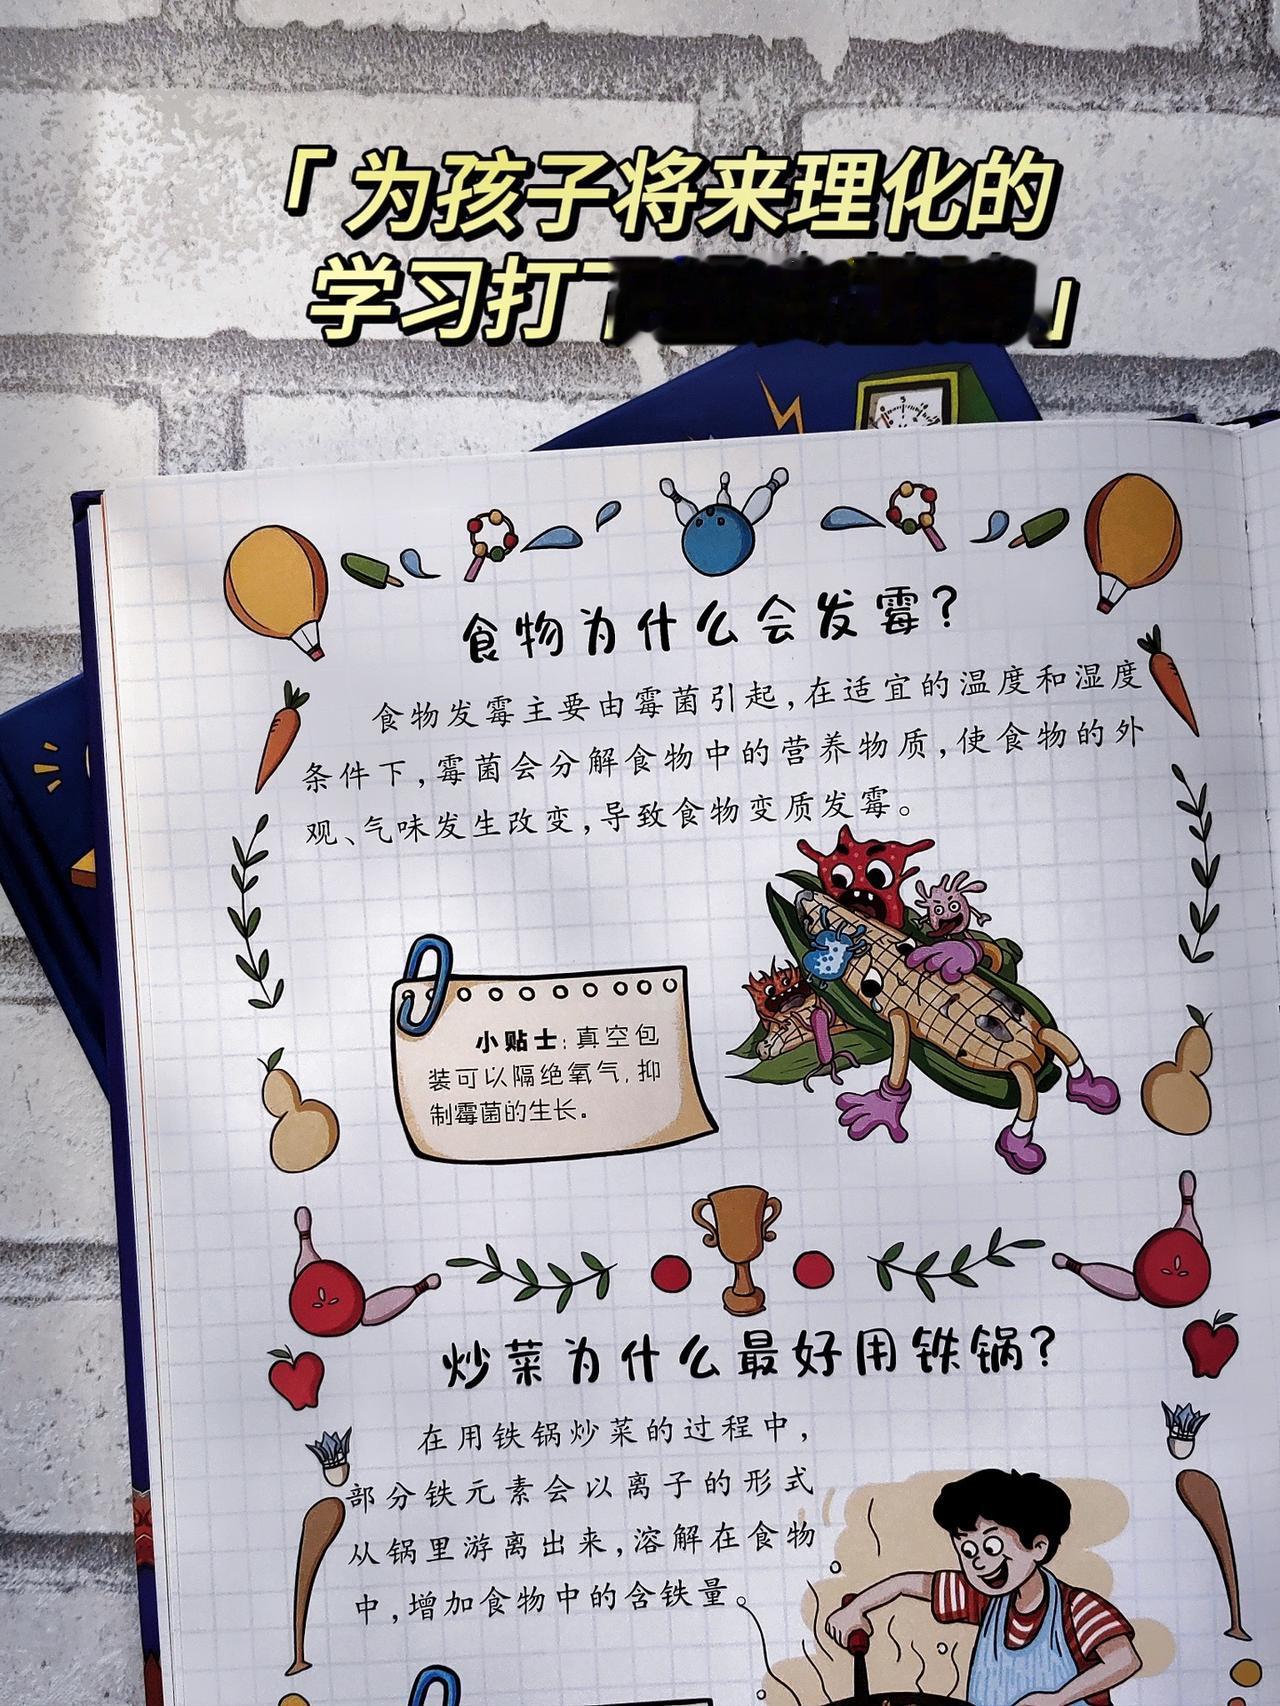 「为孩子将来理化的
学习打了」
食物为什么会发霉?
食物发霉主要由霉菌引起,在适宜的温度和湿度
条件下,霉菌会分解食物中的营养物质,使食物的外
观、气味发生改变,导致食物变质发霉。
小贴士:真空包
装可以隔绝氧气,抑
制霉菌的生长。
炒菜为什么最好用铁锅?
在用铁锅炒菜的过程中,
部分铁元素会以离子的形式
从锅里游离出来,溶解在食物
中,增加食物中的含铁量。